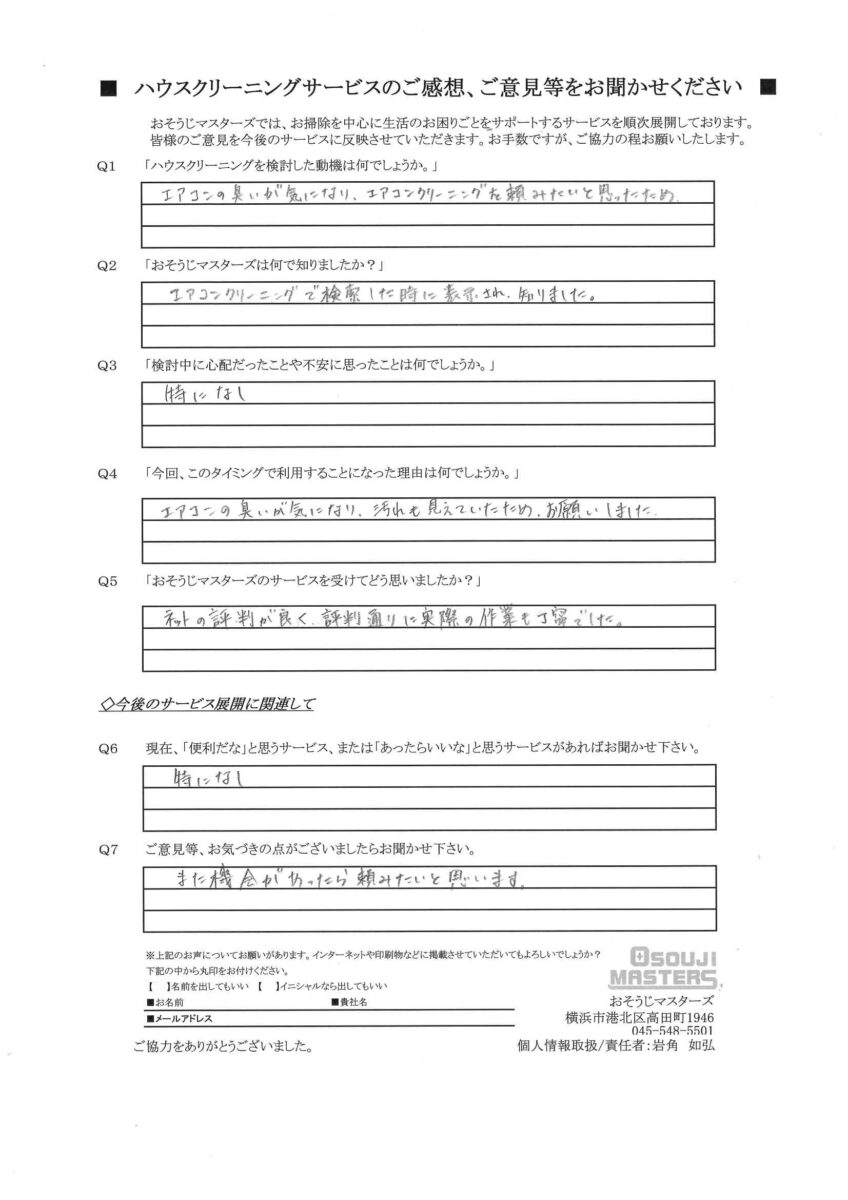 ■ ハウスクリーニングサービスのご感想、ご意見等をお聞かせください ■
おそうじマスターズでは、お掃除を中心に生活のお困りごとをサポートするサービスを順次展開しております。
皆様のご意見を今後のサービスに反映させていただきます。お手数ですが、ご協力の程お願いしたします。
Q1 「ハウスクリーニングを検討した動機は何でしょうか。」
エアコンの臭いが気になり、エアコンクリーニングを頼みたいと思ったため。
Q2 「おそうじマスターズは何で知りましたか?」
エアコンクリーニングで検索した時に表示され、知りました。
Q3 「検討中に心配だったことや不安に思ったことは何でしょうか。」
特になし
Q4 「今回、このタイミングで利用することになった理由は何でしょうか。」
エアコンの臭いが気になり、汚れも見えていたため、お願いしました。
Q5 「おそうじマスターズのサービスを受けてどう思いましたか?」
ネットの評判が良く、評判通りに実際の作業も丁寧でした。
◇今後のサービス展開に関連して
Q6 現在、「便利だな」と思うサービス、または「あったらいいな」と思うサービスがあればお聞かせ下さい。
特になし
Q7 ご意見等、お気づきの点がございましたらお聞かせ下さい。
また機会があったら頼みたいと思います。
※上記のお声についてお願いがあります。インターネットや印刷物などに掲載させていただいてもよろしいでしょうか?
下記の中から丸印をお付けください。
【 】名前を出してもいい 【 】イニシャルなら出してもいい
■お名前 ■貴社名
■メールアドレス
ご協力をありがとうございました。
OSOUJI
MASTERS
おそうじマスターズ
横浜市港北区高田町1946
045-548-5501
個人情報取扱/責任者:岩角 如弘